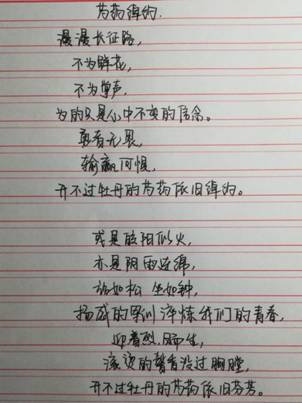 芍药绰约.
漫漫长征路,
不为鲜花,
不为掌声.
为的只是心中不变的信念。
青春无畏,
输赢何惧,
开不过牡丹的芍药依旧绰约。
或是骄阳似火,
亦是阴雨连绵,
站如松 坐如钟,
扬威的军训淬炼我们的青春,
迎着烈日而生,
滚烫的馨香浸过胸膛,
开不过牡丹的芍药依旧芬芳。